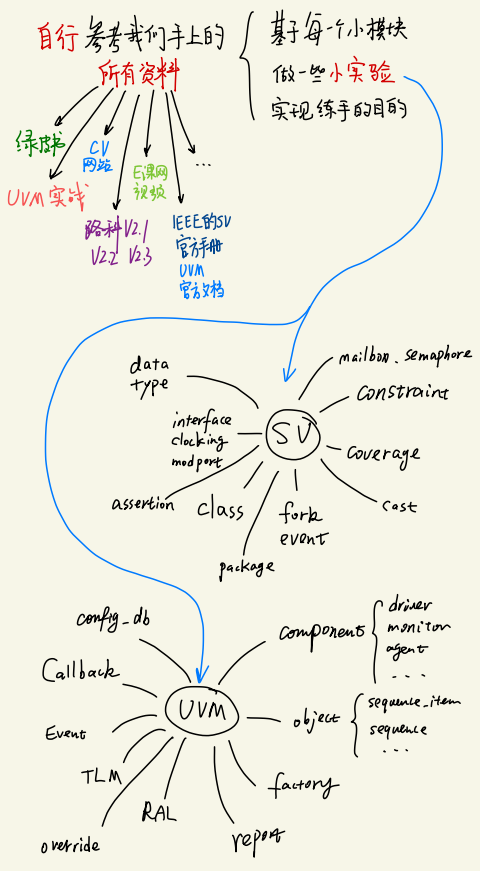 自行参考我们手上的
所有资料
基于每一个小模块
做一些小实验
实现练手的目的
绿皮书
UVM实战
CV
网站
路科V2.1
V2.2 V2.3
E课网
视频
IEEE的SV
官方手册
UVM
官方文档
...
SV
data
type
interface
clocking
modport
assertion
class
package
fork
event
cast
coverage
constraint
mailbox、semaphore
UVM
config_db
Callback
Event
TLM
override
RAL
report
factory
object
sequence_item
sequence
...
component
driver
monitor
agent
...